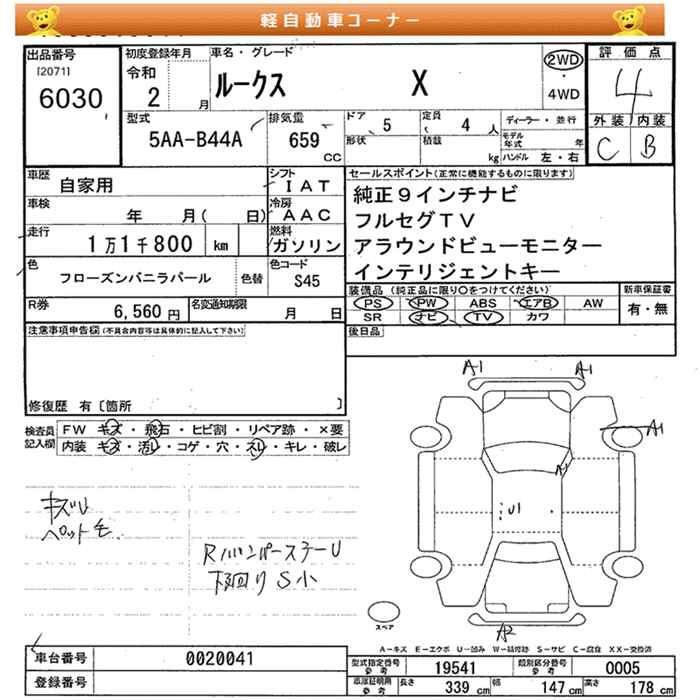 軽自動車コーナー
出品番号
[2071]
6030
初度登録年月
令和
2 月
車名・グレード
ルークス X
2WD
・
4WD
評価点
4
外装 内装
C B
型式
5AA-B44A
排気量
659
CC
ドア
5
定員
4 人
形状
積載
kg
ディーラー・並行
モデル年式 年
ハンドル 左・右
車歴
自家用
シフト
IAT
車検
年 月( 日)
冷房
AAC
走行
1万1千800 km
燃料
ガソリン
色
フローズンバニラパール
色替
色コード
S45
R券
6,560 円
名変通知期限
月 日
セールスポイント(正常に機能するものに限ります)
純正9インチナビ
フルセグTV
アラウンドビューモニター
インテリジェントキー
装備品(純正品に限り○をつけてください)
PS PW ABS エアB AW
SR ナビ TV カワ
新車保証書
有・無
後日品
注意事項申告欄(不具合内容等は具体的に記入して下さい)
修復歴 有〔箇所 〕
検査員
記入欄
FW キズ・飛石・ヒビ割・リペア跡・×要
内装 キズ・汚レ・コゲ・穴・スレ・キレ・破レ
キズU
ペットモ
下廻りS小
A1 A1
A1
A1
U1
A2
スペア
A-キズ E-エクボ U-凹み W-補修跡 S-サビ C-腐食 XX-交換済
車台番号
0020041
登録番号
型式指定番号
参考
19541
類別区分番号
参考
0005
車庫証明用
参考
長さ 339 cm
幅 147 cm
高さ 178 cm